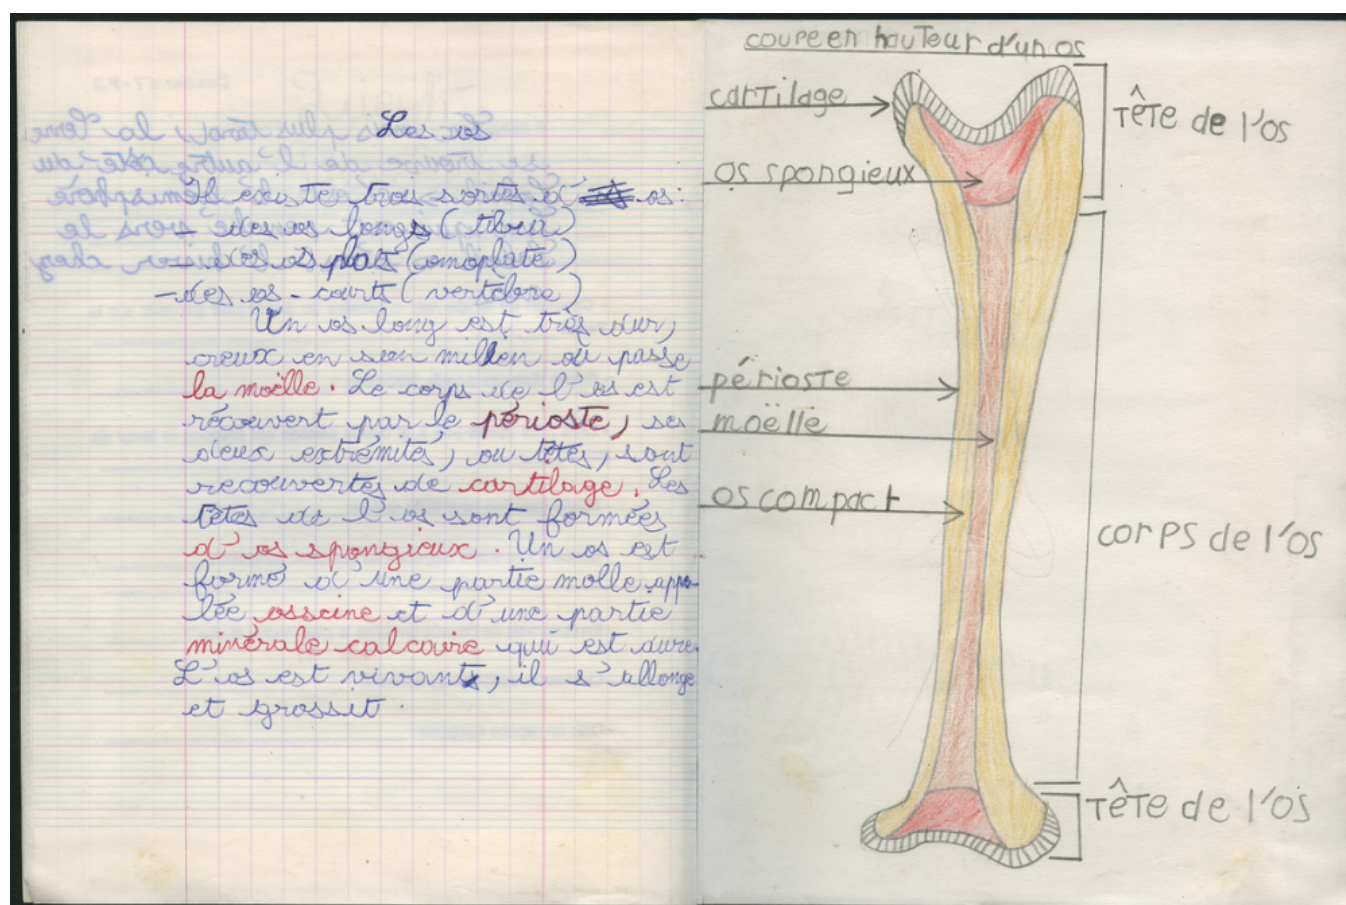 Les os
Il existe trois sortes d' os :
- des os longs (tibia)
- des os plats (omoplate)
- des os - courts (vertèbre)
Un os long est très dur,
creux en son milieu où passe
la moëlle. Le corps de l'os est
récouvert par le périoste, ses
deux extrémités, ou têtes, sont
recouvertes de cartilage. Les
têtes de l'os sont formées
d'os spongieux. Un os est
formé d'une partie molle appe-
lée osseine et d'une partie
minérale calcaire qui est dure.
L'os est vivant, il s'allonge
et grossit.
coupe en hauteur d'un os
cartilage
TÊTE de l'os
os spongieux
périoste
moëlle
os compact
corps de l'os
TÊTE de l'os